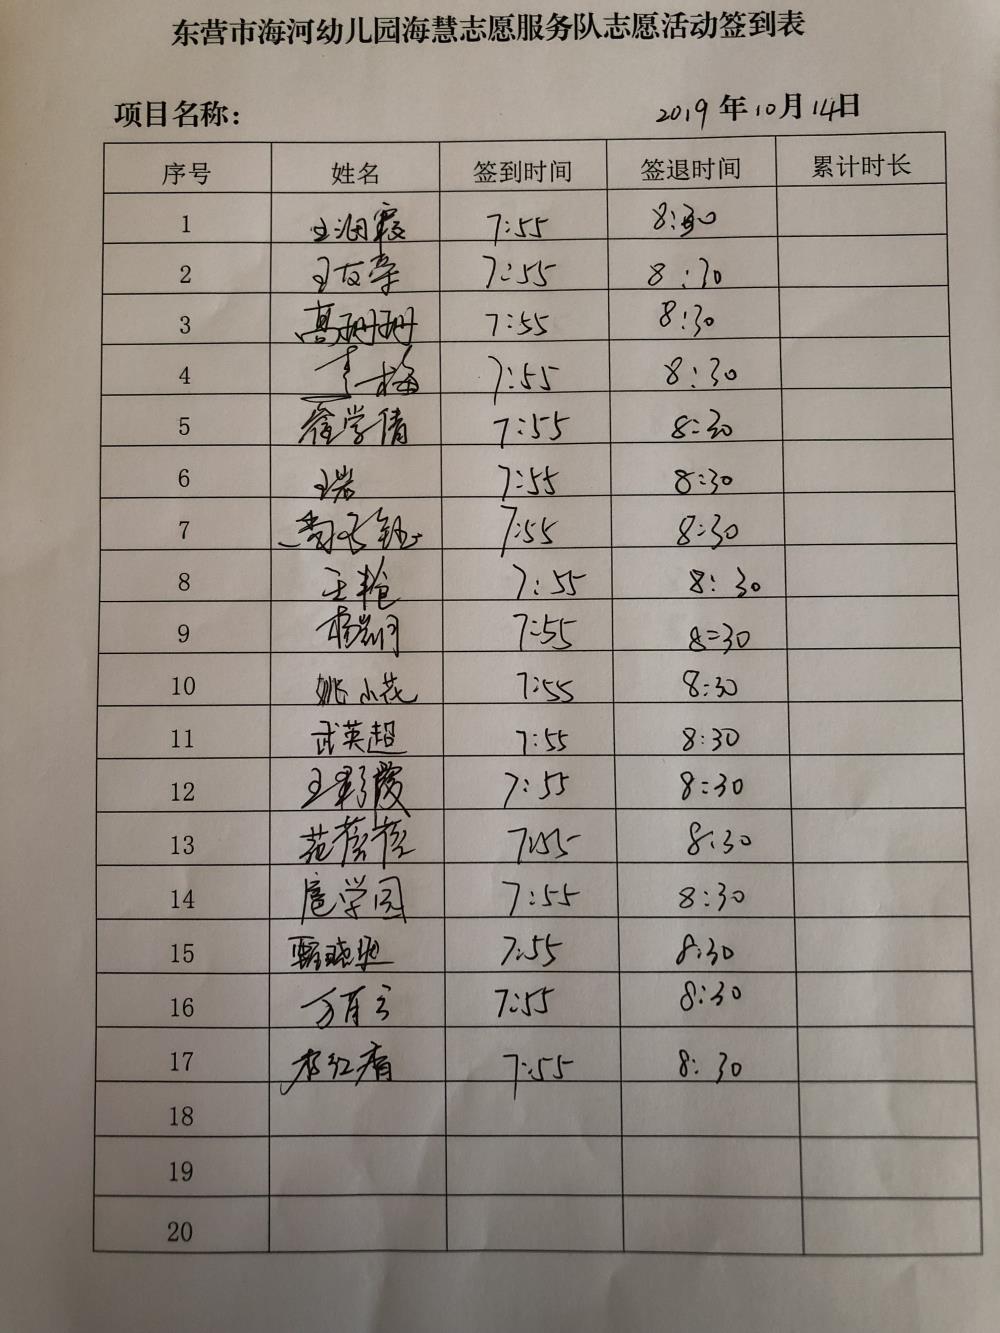 东营市海河幼儿园海慧志愿服务队志愿活动签到表
项目名称: 2019 年 10 月 14 日
序号 姓名 签到时间 签退时间 累计时长
1 7:55 8:30
2 王友荣 7:55 8:30
3 高珊珊 7:55 8:30
4 李梅 7:55 8:30
5 崔学倩 7:55 8:30
6 王岩 7:55 8:30
7 7:55 8:30
8 王艳 7:55 8:30
9 7:55 8:30
10 姚小花 7:55 8:30
11 武英超 7:55 8:30
12 王彩霞 7:55 8:30
13 范蓓蓓 7:55 8:30
14 扈学园 7:55 8:30
15 7:55 8:30
16 7:55 8:30
17 7:55 8:30
18
19
20